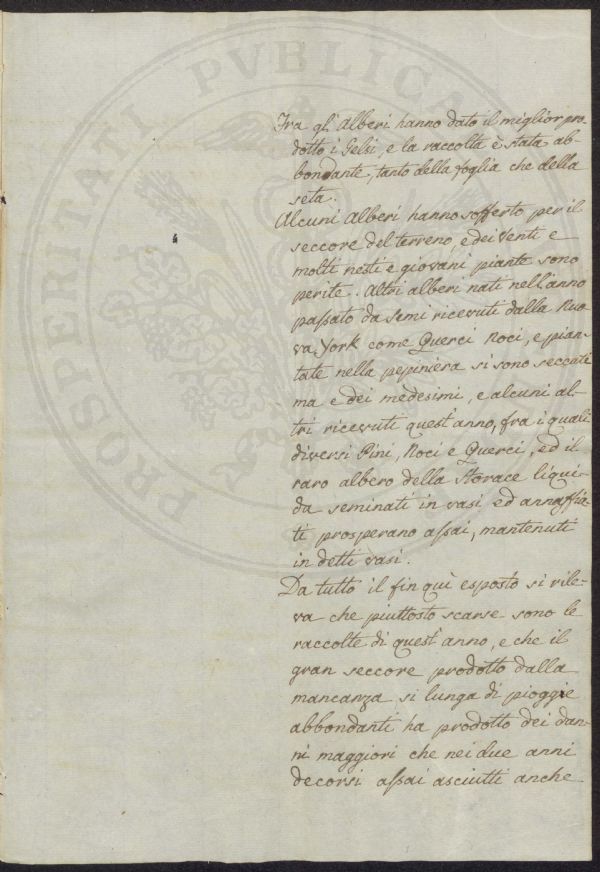 PROSPERITATI PVBLICAE
Fra gl' Alberi hanno dato il miglior pro-
dotto i Gelsi, e la raccolta è stata ab-
bondante, tanto della foglia che della
seta.
Alcuni Alberi hanno sofferto per il
seccore del terreno, e dei Venti e
molti nesti e giovani piante sono
perite. Altri alberi nati nell'anno
passato da semi ricevuti dalla Nuo-
va York come Querci Noci, e pian-
tate nella pepiniera si sono seccati
ma e dei medesimi, e alcuni al-
tri ricevuti quest'anno, fra i quali
diversi Pini, Noci e Querci, ed il
raro albero della Storace liqui-
da seminati in vasi ed annaffia-
ti prosperano assai, mantenuti
in detti vasi.
Da tutto il fin quì esposto si rile-
va che piuttosto scarse sono le
raccolte di quest'anno, e che il
gran seccore prodotto dalla
mancanza si lunga di pioggie
abbondanti ha prodotto dei dan-
ni maggiori che nei due anni
decorsi assai asciutti anche